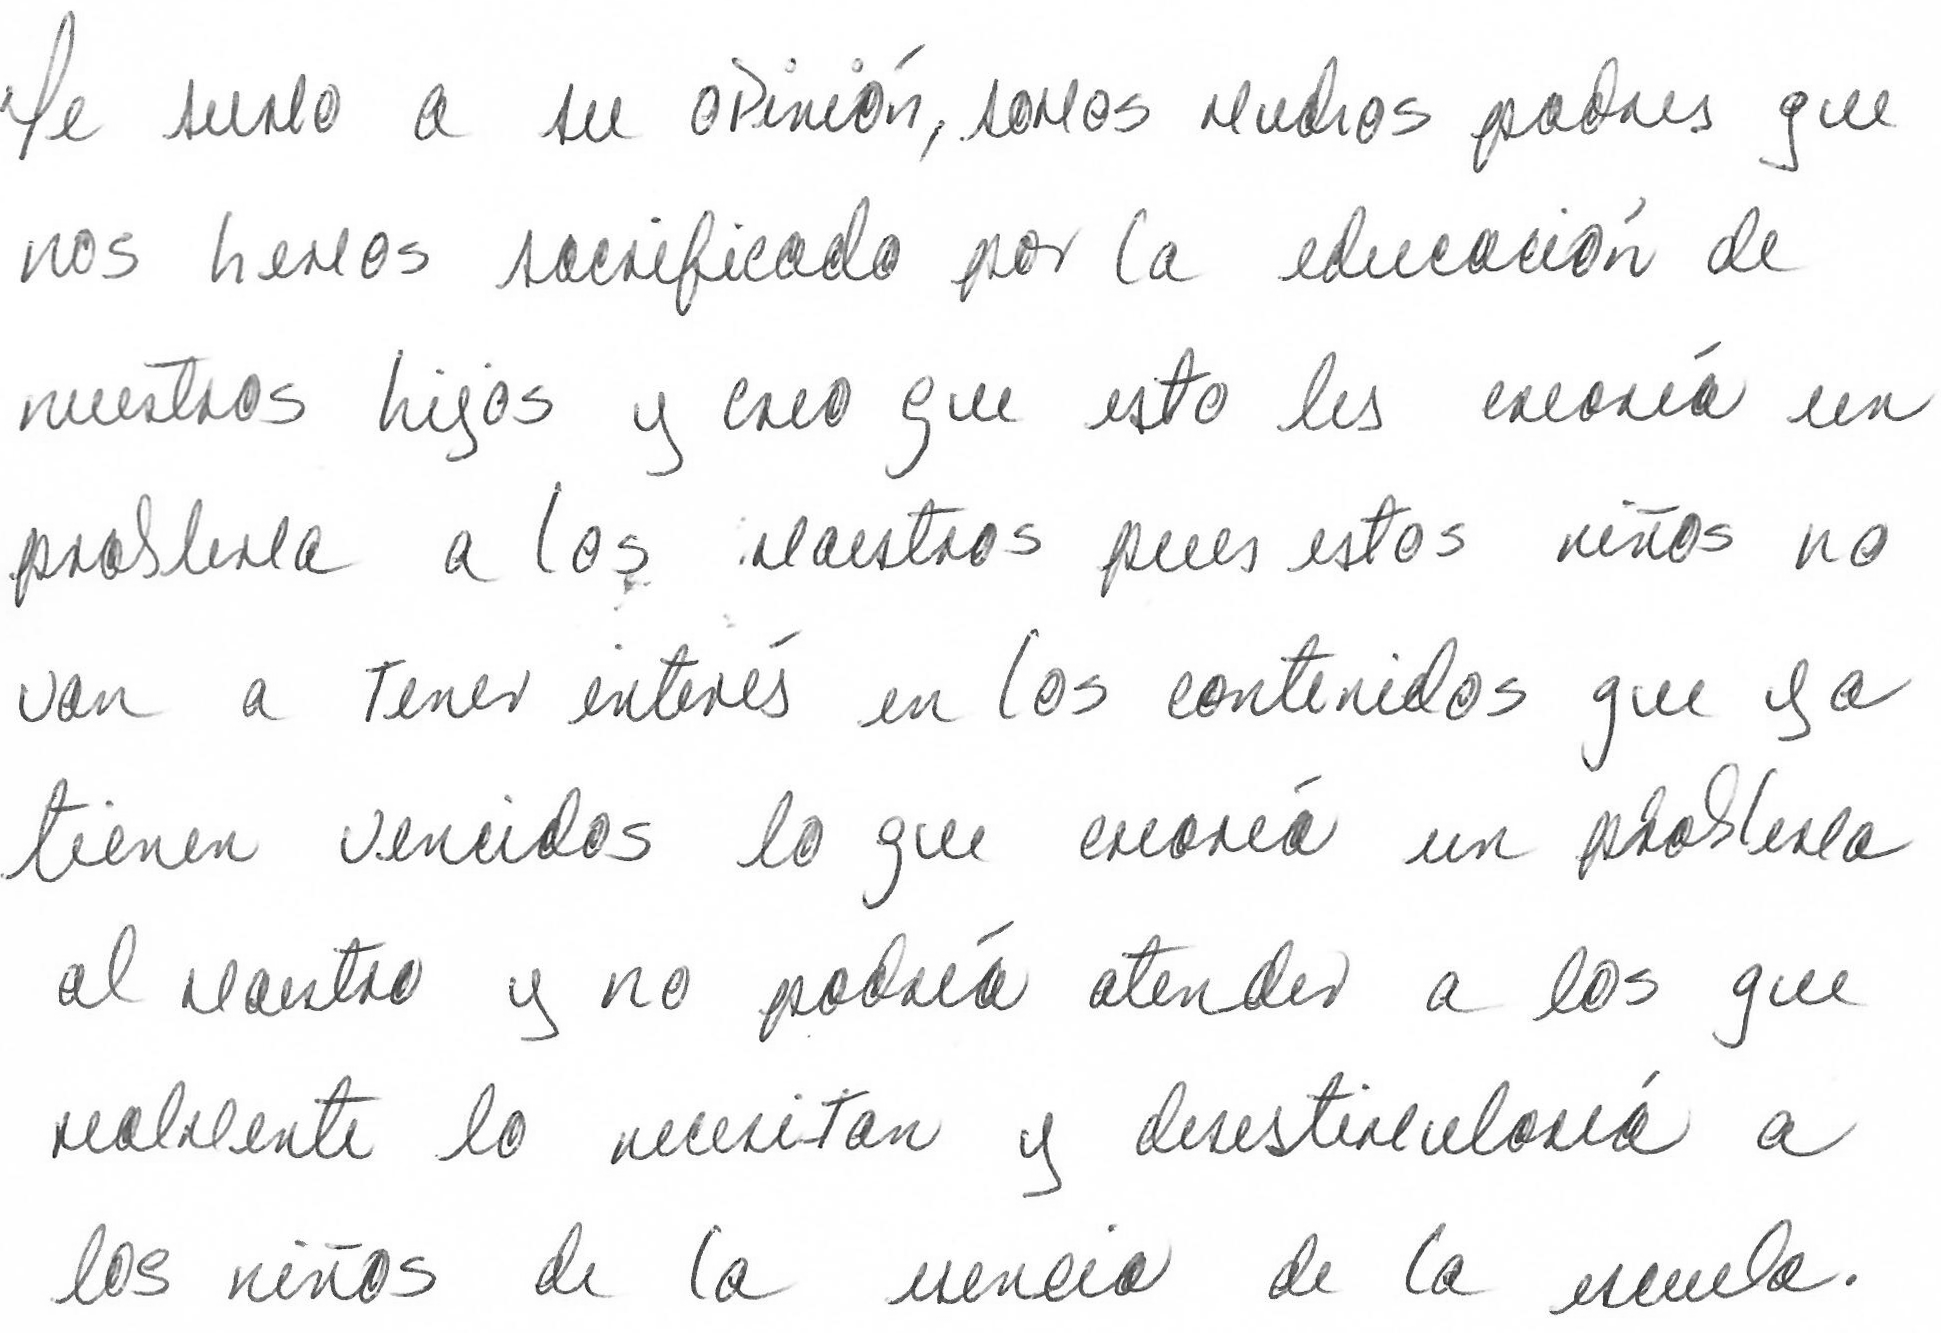 Me sumo a su opinión, somos muchos padres que
nos hemos sacrificado por la educación de
nuestros hijos y creo que esto les crearía un
problema a los maestros pues estos niños no
van a tener interés en los contenidos que ya
tienen vencidos lo que crearía un problema
al maestro y no podría atender a los que
realmente lo necesitan y desestimularía a
los niños de la esencia de la escuela.